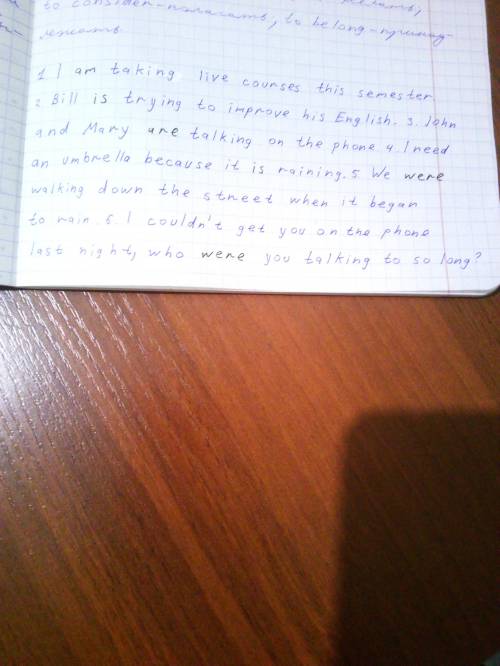 to consider-полагать, to belong-принад-
лежать.
1 I am taking live courses this semester
2. Bill is trying to improve his English. 3. John
and Mary are talking on the phone 4. I need
an umbrella because it is raining. 5. We were
walking down the street when it began
to rain. 6. I couldn't get you on the phone
last night, who were you talking to so long?